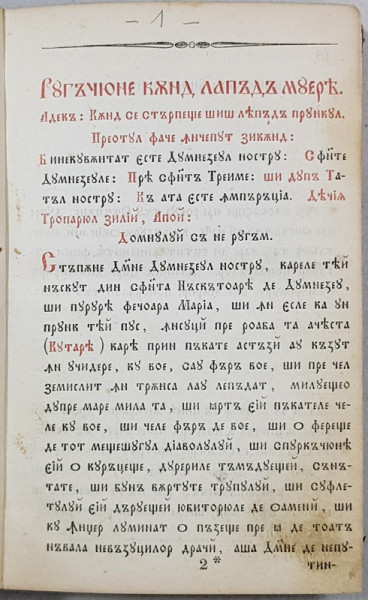 – 1 –
РУГЪЧЮНЕ КѪНД ЛАПЪДЪ МУЕРѢ.
Адекъ: Кѫнд се стърпеще шиш лѣпъдъ прункул.
Преотул фаче ꙟнчепут зикѫнд:
Бинекувѫнтат ĕсте Думнеѕеул ностру: Сфи́те
Думнеѕеуле: Прѣ сфи́тъ Треиме: ши дупъ Та-
тъл ностру: Къ ата ĕсте ꙟмпъръціа. Дечїѧ
Тропарюл зилїй, Апой:
Домнулуй съ не ругъм.
Стъпѫне Дм҃не Думнеѕеул ностру, кареле тѣй
нъскут дин сфи́та Нъскътоаре де Думнеѕеу,
ши пуруре фечоара Маріа, ши ꙟн ĕсле ка ун
прунк тѣй пус, ꙟнсуцй пре роаба та ачѣста
(Кутаре) карѣ прин пъкате астъзй ау къзут
ꙟн учидере, ку вое, сау фъръ вое, ши пре чел
земислит ꙟн трѫнса лау лепъдат, милуещео
дупре маре мила та, ши ꙗртъ ĕїй пъкателе че-
ле ку вое, ши челе фъръ де вое, ши ѻ фереще
де тот мещешугул діаволулуй, ши спуркъчюнѣ
ĕїй ѻ куръцеще, дурериле тъмъдуещей, сънъ-
тате, ши бунъ вѫртуте трупулуй, ши суфле-
тулуй ĕїй дъруещей юбиторюле де ѻаменй, ши
ку ꙟнџер луминат ѻ пъзеще пре ѩ де тоатъ
нъвала невъзуцилор драчй, аша Дм҃не де непу-
2*
тин-